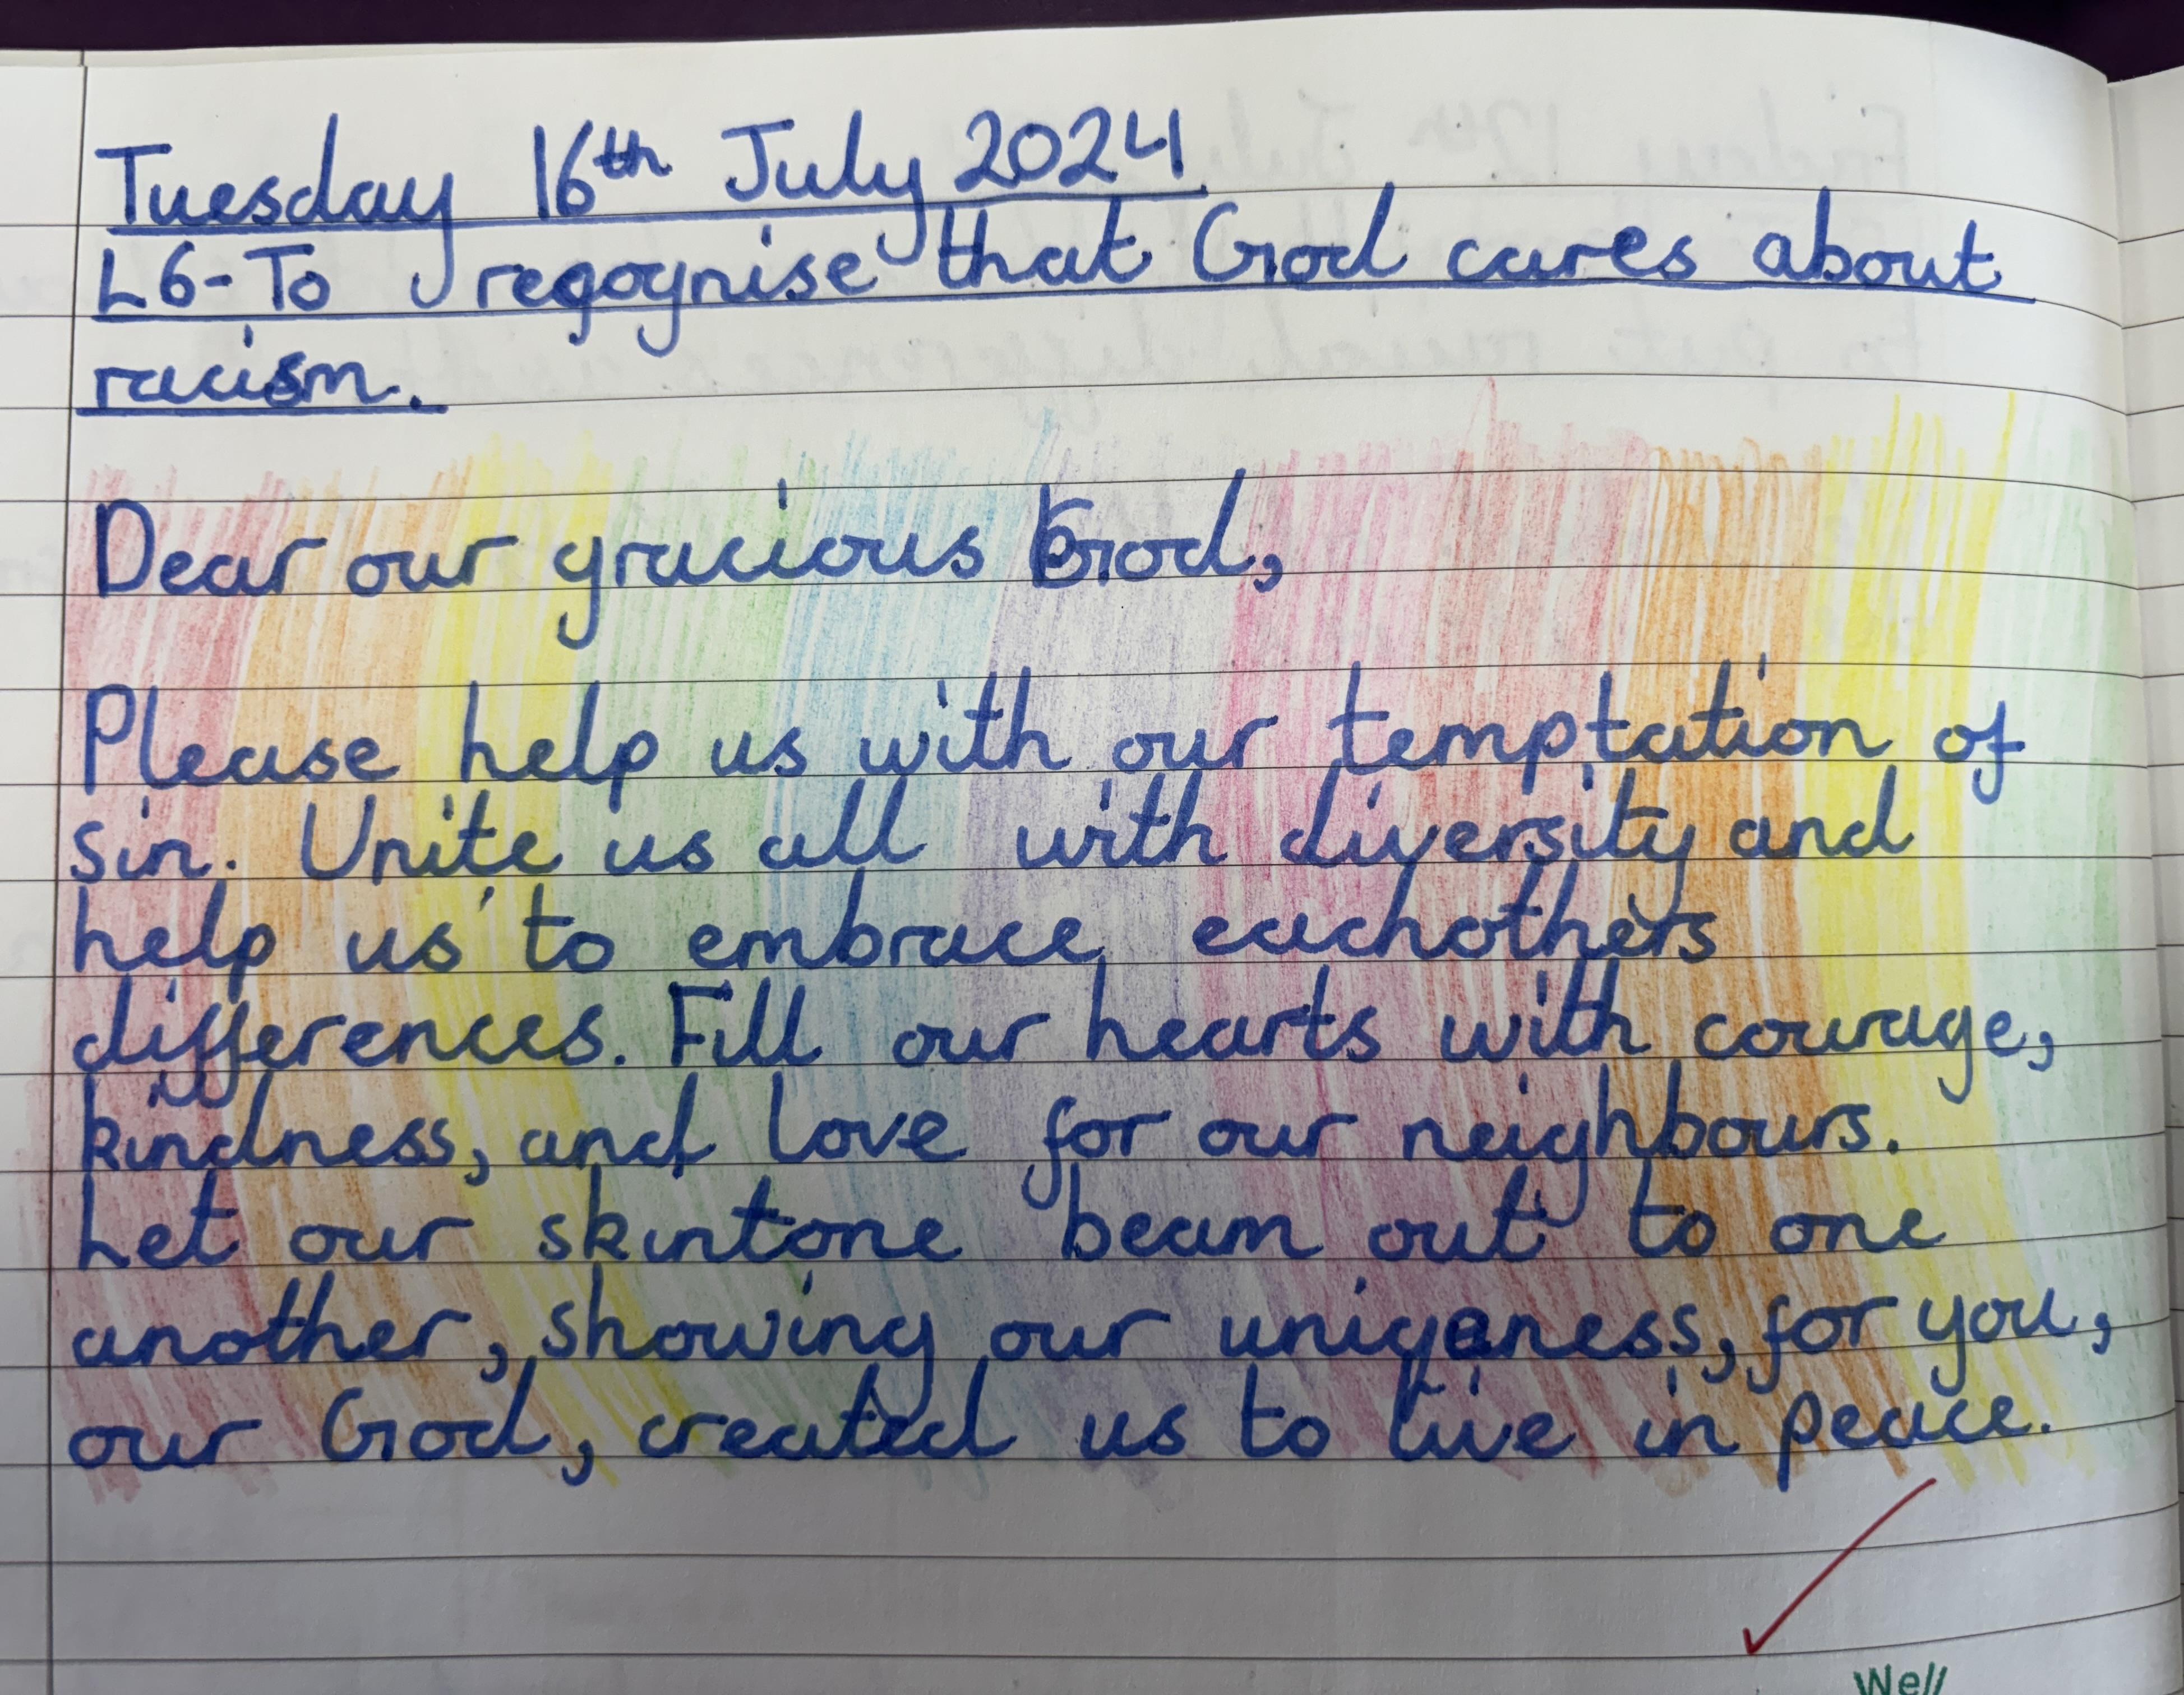 Tuesday 16th July 2024
L6-To regognise that God cares about
racism.
Dear our gracious God,
Please help us with our temptation of
sin. Unite us all with diversity and
help us to embrace eachothers
differences. Fill our hearts with courage,
kindness, and love for our neighbours.
Let our skintone beam out to one
another, showing our uniqeness, for you,
our God, created us to live in peace.
Well